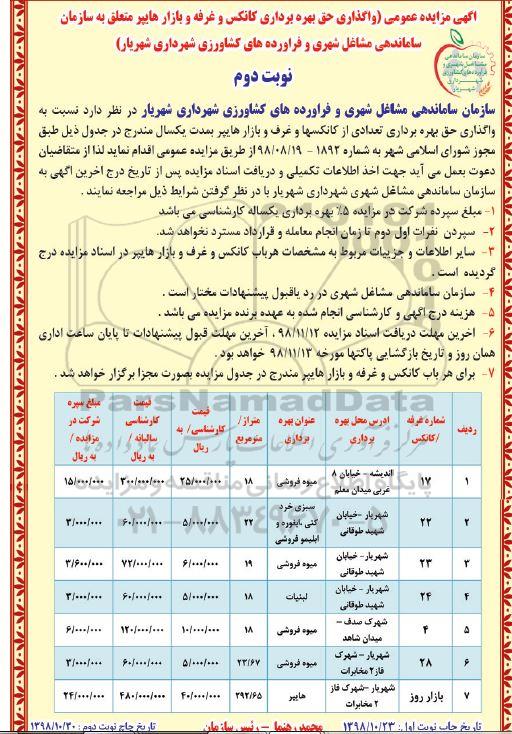 آگهی مزایده عمومی (واگذاری حق بهره برداری کانکس و غرفه و بازار هایپر متعلق به سازمان
ساماندهی مشاغل شهری و فراورده های کشاورزی شهرداری شهریار)
نوبت دوم
سازمان ساماندهی مشاغل شهری و فراورده های کشاورزی شهرداری شهریار
سازمان ساماندهی مشاغل شهری و فراورده های کشاورزی شهرداری شهریار در نظر دارد نسبت به
واگذاری حق بهره برداری تعدادی از کانکسها و غرف و بازار هایپر بمدت یکسال مندرج در جدول ذیل طبق
مجوز شورای اسلامی شهر به شماره ۱۸۹۲ - ۹۸/۰۸/۱۹ از طریق مزایده عمومی اقدام نماید لذا از متقاضیان
دعوت بعمل می آید جهت اخذ اطلاعات تکمیلی و دریافت اسناد مزایده پس از تاریخ درج آخرین آگهی به
سازمان ساماندهی مشاغل شهری شهرداری شهریار با در نظر گرفتن شرایط ذیل مراجعه نمایند .
۱- مبلغ سپرده شرکت در مزایده ۵٪ بهره برداری یکساله کارشناسی می باشد
۲- سپردن نفرات اول دوم تا زمان انجام معامله و قرارداد مسترد نخواهد شد.
۳- سایر اطلاعات و جزییات مربوط به مشخصات هرباب کانکس و غرف و بازار هایپر در اسناد مزایده درج
گردیده است .
۴- سازمان ساماندهی مشاغل شهری در رد یاقبول پیشنهادات مختار است .
۵- هزینه درج آگهی و کارشناسی انجام شده به عهده برنده مزایده می باشد .
۶- اخرین مهلت دریافت اسناد مزایده ۹۸/۱۱/۱۲ ، آخرین مهلت قبول پیشنهادات تا پایان ساعت اداری
همان روز و تاریخ بازگشایی پاکتها مورخه ۹۸/۱۱/۱۳ خواهد بود .
۷- برای هر باب کانکس و غرفه و بازار هایپر مندرج در جدول مزایده بصورت مجزا برگزار خواهد شد .
ردیف | شماره غرفه /کانکس | ادرس محل بهره برداری | عنوان بهره برداری | متراژ/ مترمربع | قیمت کارشناسی/ به ریال | قیمت کارشناسی سالیانه / به ریال | مبلغ سپره شرکت در مزایده / به ریال
۱ | ۱۷ | اندیشه - خیابان ۸ غربی میدان معلم | میوه فروشی | ۱۸ | ۲۵/۰۰۰/۰۰۰ | ۳۰۰/۰۰۰/۰۰۰ | ۱۵/۰۰۰/۰۰۰
۲ | ۲۲ | شهریار -خیابان شهید طوقانی | سبزی خرد کنی ،ابغوره و ابلیمو فروشی | ۲۲ | ۵/۰۰۰/۰۰۰ | ۶۰/۰۰۰/۰۰۰ | ۳/۰۰۰/۰۰۰
۳ | ۲۳ | شهریار- خیابان شهید طوقانی | میوه فروشی | ۱۹ | ۶/۰۰۰/۰۰۰ | ۷۲/۰۰۰/۰۰۰ | ۳/۶۰۰/۰۰۰
۴ | ۲۴ | شهریار - خیابان شهید طوقانی | لبنیات | ۱۸ | ۵/۰۰۰/۰۰۰ | ۶۰/۰۰۰/۰۰۰ | ۳/۰۰۰/۰۰۰
۵ | ۴ | شهرک صدف – میدان شاهد | میوه فروشی | ۱۸ | ۱۰/۰۰۰/۰۰۰ | ۱۲۰/۰۰۰/۰۰۰ | ۶/۰۰۰/۰۰۰
۶ | ۲۸ | شهریار – شهرک فاز۲ مخابرات | میوه فروشی | ۲۳/۶۷ | ۵/۰۰۰/۰۰۰ | ۶۰/۰۰۰/۰۰۰ | ۳/۰۰۰/۰۰۰
۷ | بازار روز | شهریار –شهرک فاز ۲ مخابرات | هایپر | ۲۹۲/۶۵ | ۴۰/۰۰۰/۰۰۰ | ۴۸۰/۰۰۰/۰۰۰ | ۲۴/۰۰۰/۰۰۰
تاریخ چاپ نوبت اول: ۱۳۹۸/۱۰/۲۳ محمد رهنما – رئیس سازمان تاریخ چاپ نوبت دوم : ۱۳۹۸/۱۰/۳۰
ParsNamadData
۰۲۱-۸۸۳۴۹۶۷۰-۵